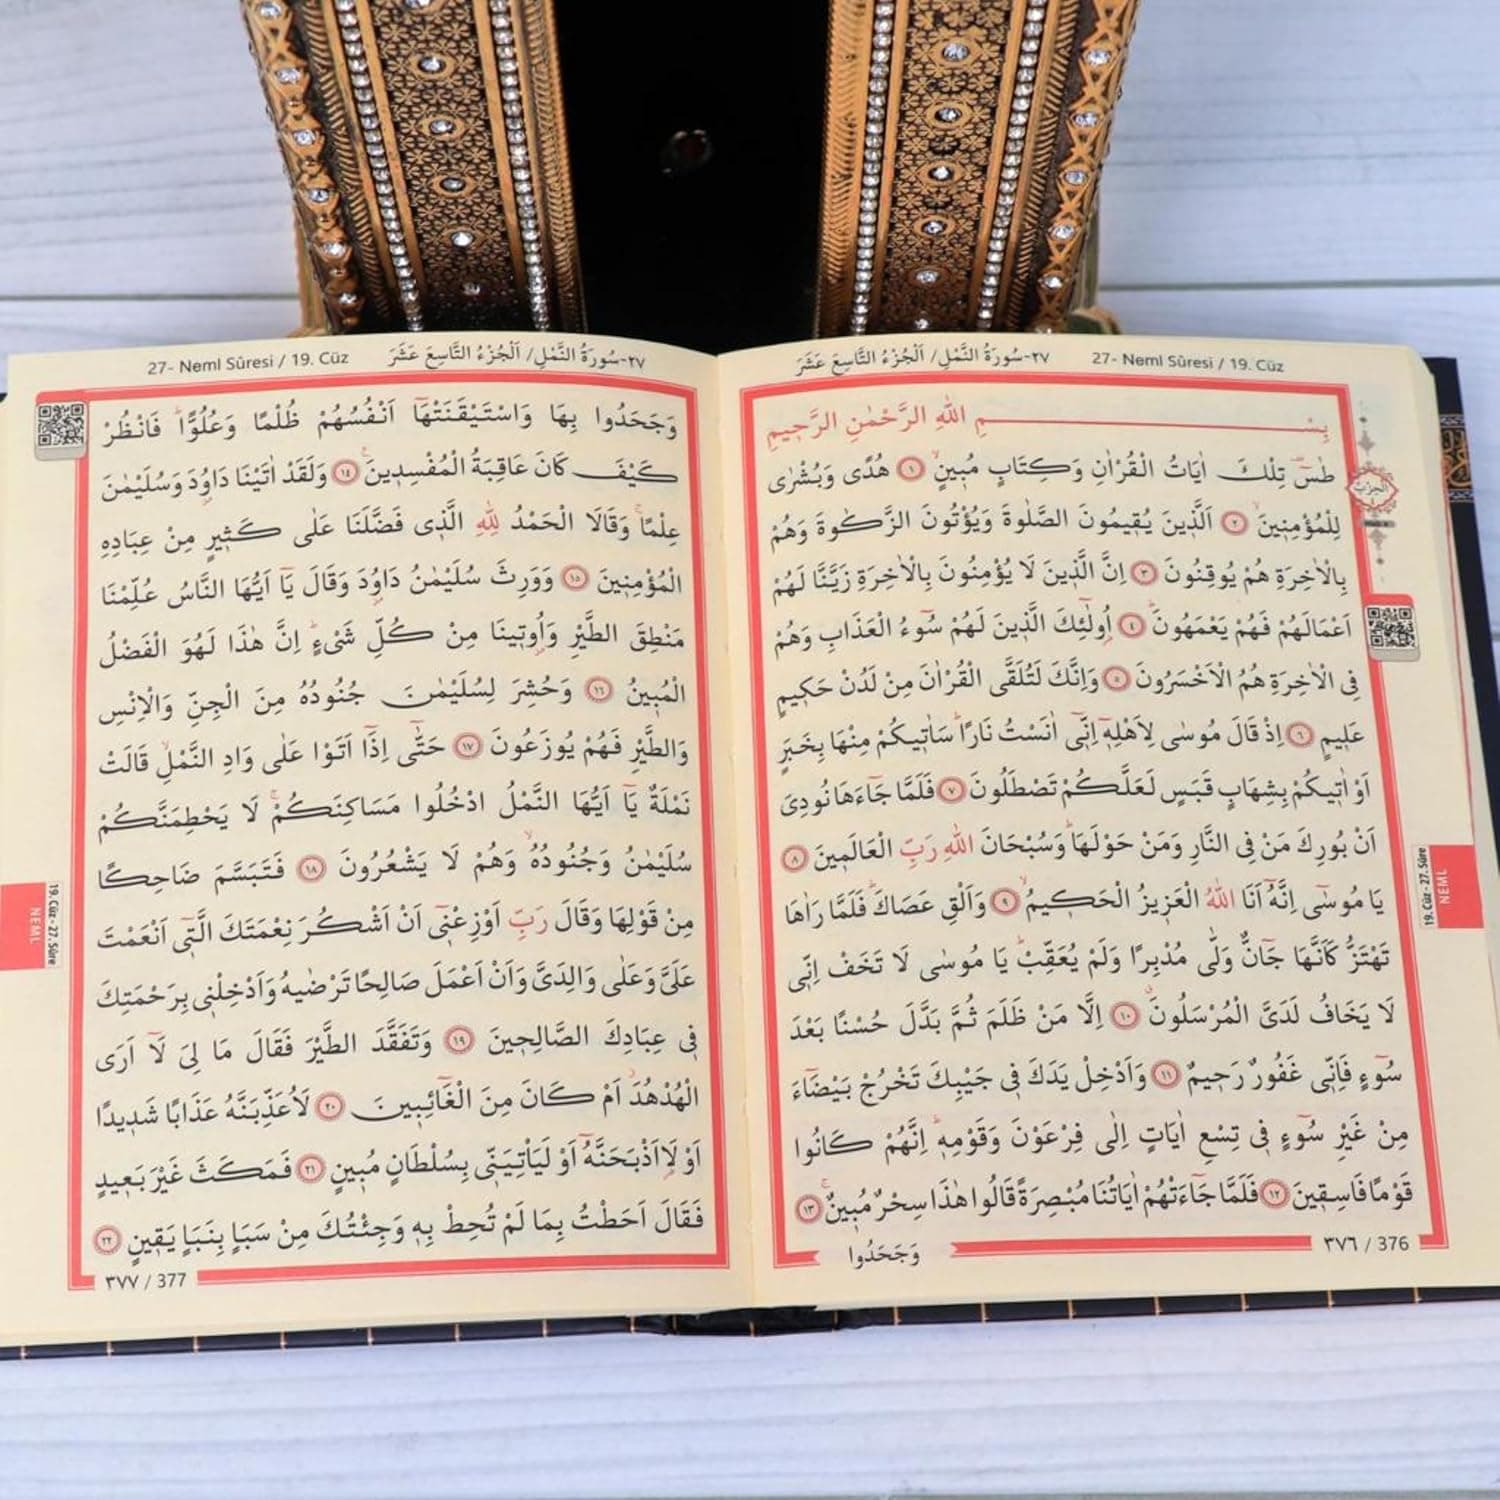 ٢٧-سُورَةُ النَّمْلِ/ اَلْجُزْءُ التَّاسِعَ عَشَرَ 27- Neml Sûresi / 19. Cüz
بِسْمِ اللّٰهِ الرَّحْمٰنِ الرَّحٖيمِ
طٰسٓ تِلْكَ اٰيَاتُ الْقُرْاٰنِ وَكِتَابٍ مُبٖينٍۙ ﴿١﴾ هُدًى وَبُشْرٰى
لِلْمُؤْمِنٖينَۙ ﴿٢﴾ اَلَّذٖينَ يُقٖيمُونَ الصَّلٰوةَ وَيُؤْتُونَ الزَّكٰوةَ وَهُمْ
بِالْاٰخِرَةِ هُمْ يُوقِنُونَ ﴿٣﴾ اِنَّ الَّذٖينَ لَا يُؤْمِنُونَ بِالْاٰخِرَةِ زَيَّنَّا لَهُمْ
اَعْمَالَهُمْ فَهُمْ يَعْمَهُونَؕ ﴿٤﴾ اُولٰٓئِكَ الَّذٖينَ لَهُمْ سُٓوءُ الْعَذَابِ وَهُمْ
فِى الْاٰخِرَةِ هُمُ الْاَخْسَرُونَ ﴿٥﴾ وَاِنَّكَ لَتُلَقَّى الْقُرْاٰنَ مِنْ لَدُنْ حَكٖيمٍ
عَلٖيمٍ ﴿٦﴾ اِذْ قَالَ مُوسٰى لِاَهْلِهٖٓ اِنّٖٓى اٰنَسْتُ نَارًاؕ سَاٰتٖيكُمْ مِنْهَا بِخَبَرٍ
اَوْ اٰتٖيكُمْ بِشِهَابٍ قَبَسٍ لَعَلَّكُمْ تَصْطَلُونَ ﴿٧﴾ فَلَمَّا جَٓاءَهَا نُودِىَ
اَنْ بُورِكَ مَنْ فِى النَّارِ وَمَنْ حَوْلَهَاؕ وَسُبْحَانَ اللّٰهِ رَبِّ الْعَالَمٖينَ ﴿٨﴾
يَا مُوسٰٓى اِنَّهُٓ اَنَا اللّٰهُ الْعَزٖيزُ الْحَكٖيمُۙ ﴿٩﴾ وَاَلْقِ عَصَاكَؕ فَلَمَّا رَاٰهَا
تَهْتَزُّ كَاَنَّهَا جَٓانٌّ وَلّٰى مُدْبِرًا وَلَمْ يُعَقِّبْؕ يَا مُوسٰى لَا تَخَفْ اِنّٖى
لَا يَخَافُ لَدَىَّ الْمُرْسَلُونَۗ ﴿١٠﴾ اِلَّا مَنْ ظَلَمَ ثُمَّ بَدَّلَ حُسْنًا بَعْدَ
سُٓوءٍ فَاِنّٖى غَفُورٌ رَحٖيمٌ ﴿١١﴾ وَاَدْخِلْ يَدَكَ فٖى جَيْبِكَ تَخْرُجْ بَيْضَٓاءَ
مِنْ غَيْرِ سُٓوءٍ فٖى تِسْعِ اٰيَاتٍ اِلٰى فِرْعَوْنَ وَقَوْمِهٖؕ اِنَّهُمْ كَانُوا
قَوْمًا فَاسِقٖينَ ﴿١٢﴾ فَلَمَّا جَٓاءَتْهُمْ اٰيَاتُنَا مُبْصِرَةً قَالُوا هٰذَا سِحْرٌ مُبٖينٌۚ ﴿١٣﴾
وَجَحَدُوا
٣٧٦ / 376
19. Cüz - 27. Sûre
NEML
٢٧-سُورَةُ النَّمْلِ/ اَلْجُزْءُ التَّاسِعَ عَشَرَ 27- Neml Sûresi / 19. Cüz
وَجَحَدُوا بِهَا وَاسْتَيْقَنَتْهَٓا اَنْفُسُهُمْ ظُلْمًا وَعُلُوًّاؕ فَانْظُرْ
كَيْفَ كَانَ عَاقِبَةُ الْمُفْسِدٖينَۚ ﴿١٤﴾ وَلَقَدْ اٰتَيْنَا دَاوُ۫دَ وَسُلَيْمٰنَ
عِلْمًاۚ وَقَالَا الْحَمْدُ لِلّٰهِ الَّذٖى فَضَّلَنَا عَلٰى كَثٖيرٍ مِنْ عِبَادِهِ
الْمُؤْمِنٖينَ ﴿١٥﴾ وَوَرِثَ سُلَيْمٰنُ دَاوُ۫دَ وَقَالَ يَٓا اَيُّهَا النَّاسُ عُلِّمْنَا
مَنْطِقَ الطَّيْرِ وَاُو۫تٖينَا مِنْ كُلِّ شَىْءٍؕ اِنَّ هٰذَا لَهُوَ الْفَضْلُ
الْمُبٖينُ ﴿١٦﴾ وَحُشِرَ لِسُلَيْمٰنَ جُنُودُهُ مِنَ الْجِنِّ وَالْاِنْسِ
وَالطَّيْرِ فَهُمْ يُوزَعُونَ ﴿١٧﴾ حَتّٰٓى اِذَٓا اَتَوْا عَلٰى وَادِ النَّمْلِۙ قَالَتْ
نَمْلَةٌ يَٓا اَيُّهَا النَّمْلُ ادْخُلُوا مَسَاكِنَكُمْۚ لَا يَحْطِمَنَّكُمْ
سُلَيْمٰنُ وَجُنُودُهُۙ وَهُمْ لَا يَشْعُرُونَ ﴿١٨﴾ فَتَبَسَّمَ ضَاحِكًا
مِنْ قَوْلِهَا وَقَالَ رَبِّ اَوْزِعْنٖٓى اَنْ اَشْكُرَ نِعْمَتَكَ الَّتٖٓى اَنْعَمْتَ
عَلَىَّ وَعَلٰى وَالِدَىَّ وَاَنْ اَعْمَلَ صَالِحًا تَرْضٰيهُ وَاَدْخِلْنٖى بِرَحْمَتِكَ
فٖى عِبَادِكَ الصَّالِحٖينَ ﴿١٩﴾ وَتَفَقَّدَ الطَّيْرَ فَقَالَ مَا لِىَ لَٓا اَرَى
الْهُدْهُدَۘ اَمْ كَانَ مِنَ الْغَٓائِبٖينَ ﴿٢٠﴾ لَاُعَذِّبَنَّهُ عَذَابًا شَدٖيدًا
اَوْ لَا۬اَذْبَحَنَّهُٓ اَوْ لَيَاْتِيَنّٖى بِسُلْطَانٍ مُبٖينٍ ﴿٢١﴾ فَمَكَثَ غَيْرَ بَعٖيدٍ
فَقَالَ اَحَطْتُ بِمَا لَمْ تُحِطْ بِهٖ وَجِئْتُكَ مِنْ سَبَاٍ بِنَبَاٍ يَقٖينٍ ﴿٢٢﴾
٣٧٧ / 377
19. Cüz - 27. Sûre
NEML